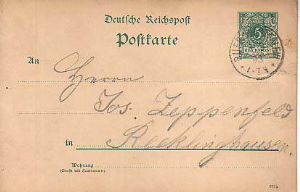 Deutsche Reichspost
Postkarte
5
An
Herrn
Jos. Zeppenfeld
in Recklinghausen
Wohnung
(Straße und Hausnummer)